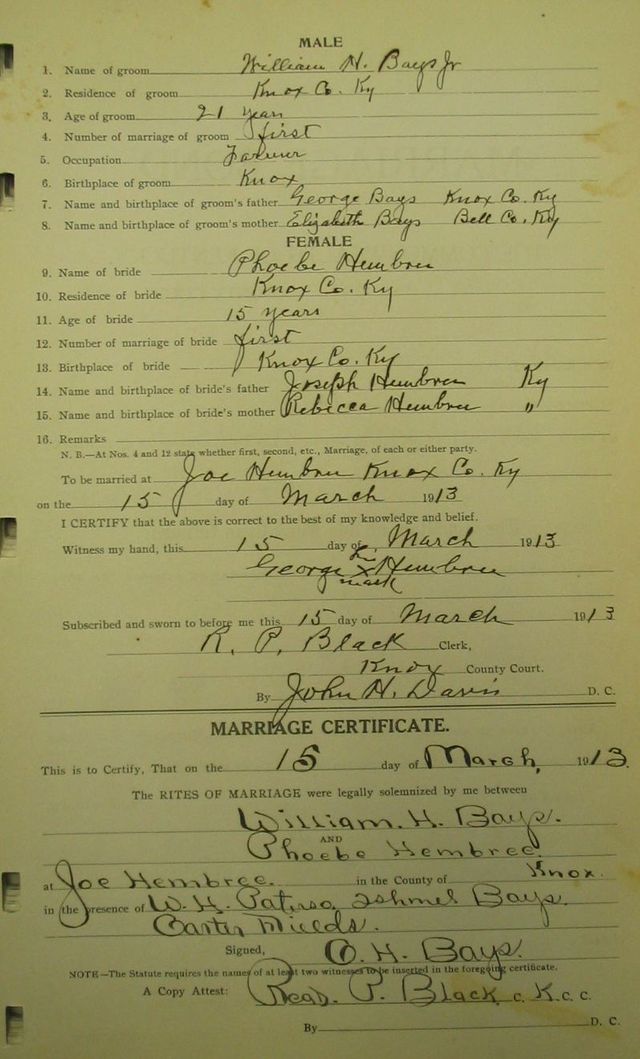 MALE
1. Name of groom William H. Bays Jr
2. Residence of groom Knox Co. Ky
3. Age of groom 21 years
4. Number of marriage of groom first
5. Occupation Farmer
6. Birthplace of groom Knox
7. Name and birthplace of groom's father George Bays Knox Co. Ky
8. Name and birthplace of groom's mother Elizabeth Bays Bell Co. Ky
FEMALE
9. Name of bride Phoebe Hembree
10. Residence of bride Knox Co. Ky
11. Age of bride 15 years
12. Number of marriage of bride first
13. Birthplace of bride Knox Co. Ky
14. Name and birthplace of bride's father Joseph Hembree Ky
15. Name and birthplace of bride's mother Rebecca Hembree "
16. Remarks
N. B.—At Nos. 4 and 12 state whether first, second, etc., Marriage, of each or either party.
To be married at Joe Hembree Knox Co. Ky
on the 15 day of March 1913
I CERTIFY that the above is correct to the best of my knowledge and belief.
Witness my hand, this 15 day of March 1913
George his X mark Hembree
Subscribed and sworn to before me this 15 day of March 1913
R. P. Black Clerk,
Knox County Court.
By John H. Davis D. C.
MARRIAGE CERTIFICATE.
This is to Certify, That on the 15 day of March, 1913.
The RITES OF MARRIAGE were legally solemnized by me between
William. H. Bays.
AND
Phoebe Hembree.
at Joe Hembree. in the County of Knox.
in the presence of W. H. Ishmel Bays.
Carter
Signed, O. H. Bays.
NOTE—The Statute requires the names of at least two witnesses to be inserted in the foregoing certificate.
A Copy Attest: Read. P. Black C. K. C. C.
By D. C.